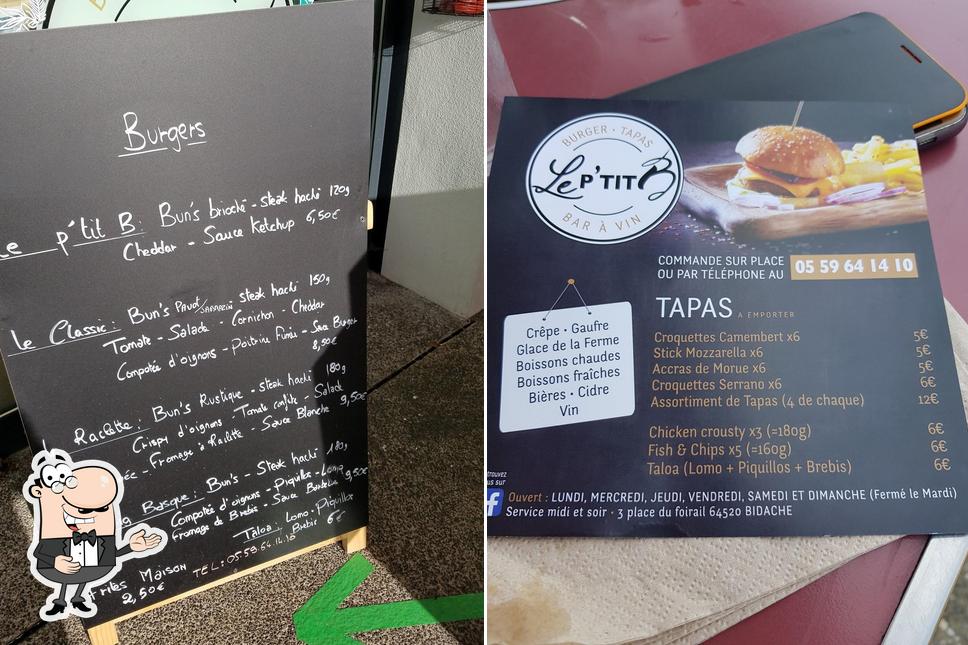 Burgers
p'tit B: Bun's brioché - steak haché 120g
Cheddar - Sauce Ketchup 6,50€
le Classic: Bun's Pavot/sarrasin steak haché 150g
Tomate - Salade - Cornichon - Cheddar
Compotée d'oignons - Poitrine Fumée - Sauce Burger
8,50€
Raclette: Bun's Rustique - steak haché 180g
Crispy d'oignons - Tomate confite - Salade
Fromage à Raclette - Sauce Blanche 9,50€
Basque: Bun's - Steak haché 180g
Compotée d'oignons - Piquillos - Lomo
Fromage de Brebis - Sauce 9,50€
Taloa: Lomo - Piquillos
Brebis 6€
Frites Maison TEL: 05.59.64.14.10
2,50€
BURGER • TAPAS
Le P'TIT B
BAR À VIN
COMMANDE SUR PLACE
OU PAR TÉLÉPHONE AU 05 59 64 14 10
Crêpe • Gaufre
Glace de la Ferme
Boissons chaudes
Boissons fraîches
Bières • Cidre
Vin
TAPAS A EMPORTER
Croquettes Camembert x6 5€
Stick Mozzarella x6 5€
Accras de Morue x6 5€
Croquettes Serrano x6 6€
Assortiment de Tapas (4 de chaque) 12€
Chicken crousty x3 (=180g) 6€
Fish & Chips x5 (=160g) 6€
Taloa (Lomo + Piquillos + Brebis) 6€
Ouvert : LUNDI, MERCREDI, JEUDI, VENDREDI, SAMEDI ET DIMANCHE (Fermé le Mardi)
Service midi et soir • 3 place du foirail 64520 BIDACHE